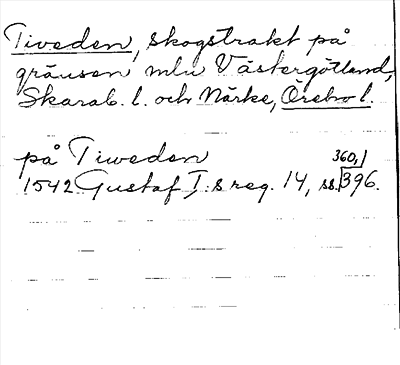 Tiveden, skogstrakt på
gränsen mln Västergötland,
Skarab. l. och Närke, Örebro l.
på Tiweden
360,
1542 Gustaf I:s reg. 14, ss. 396.